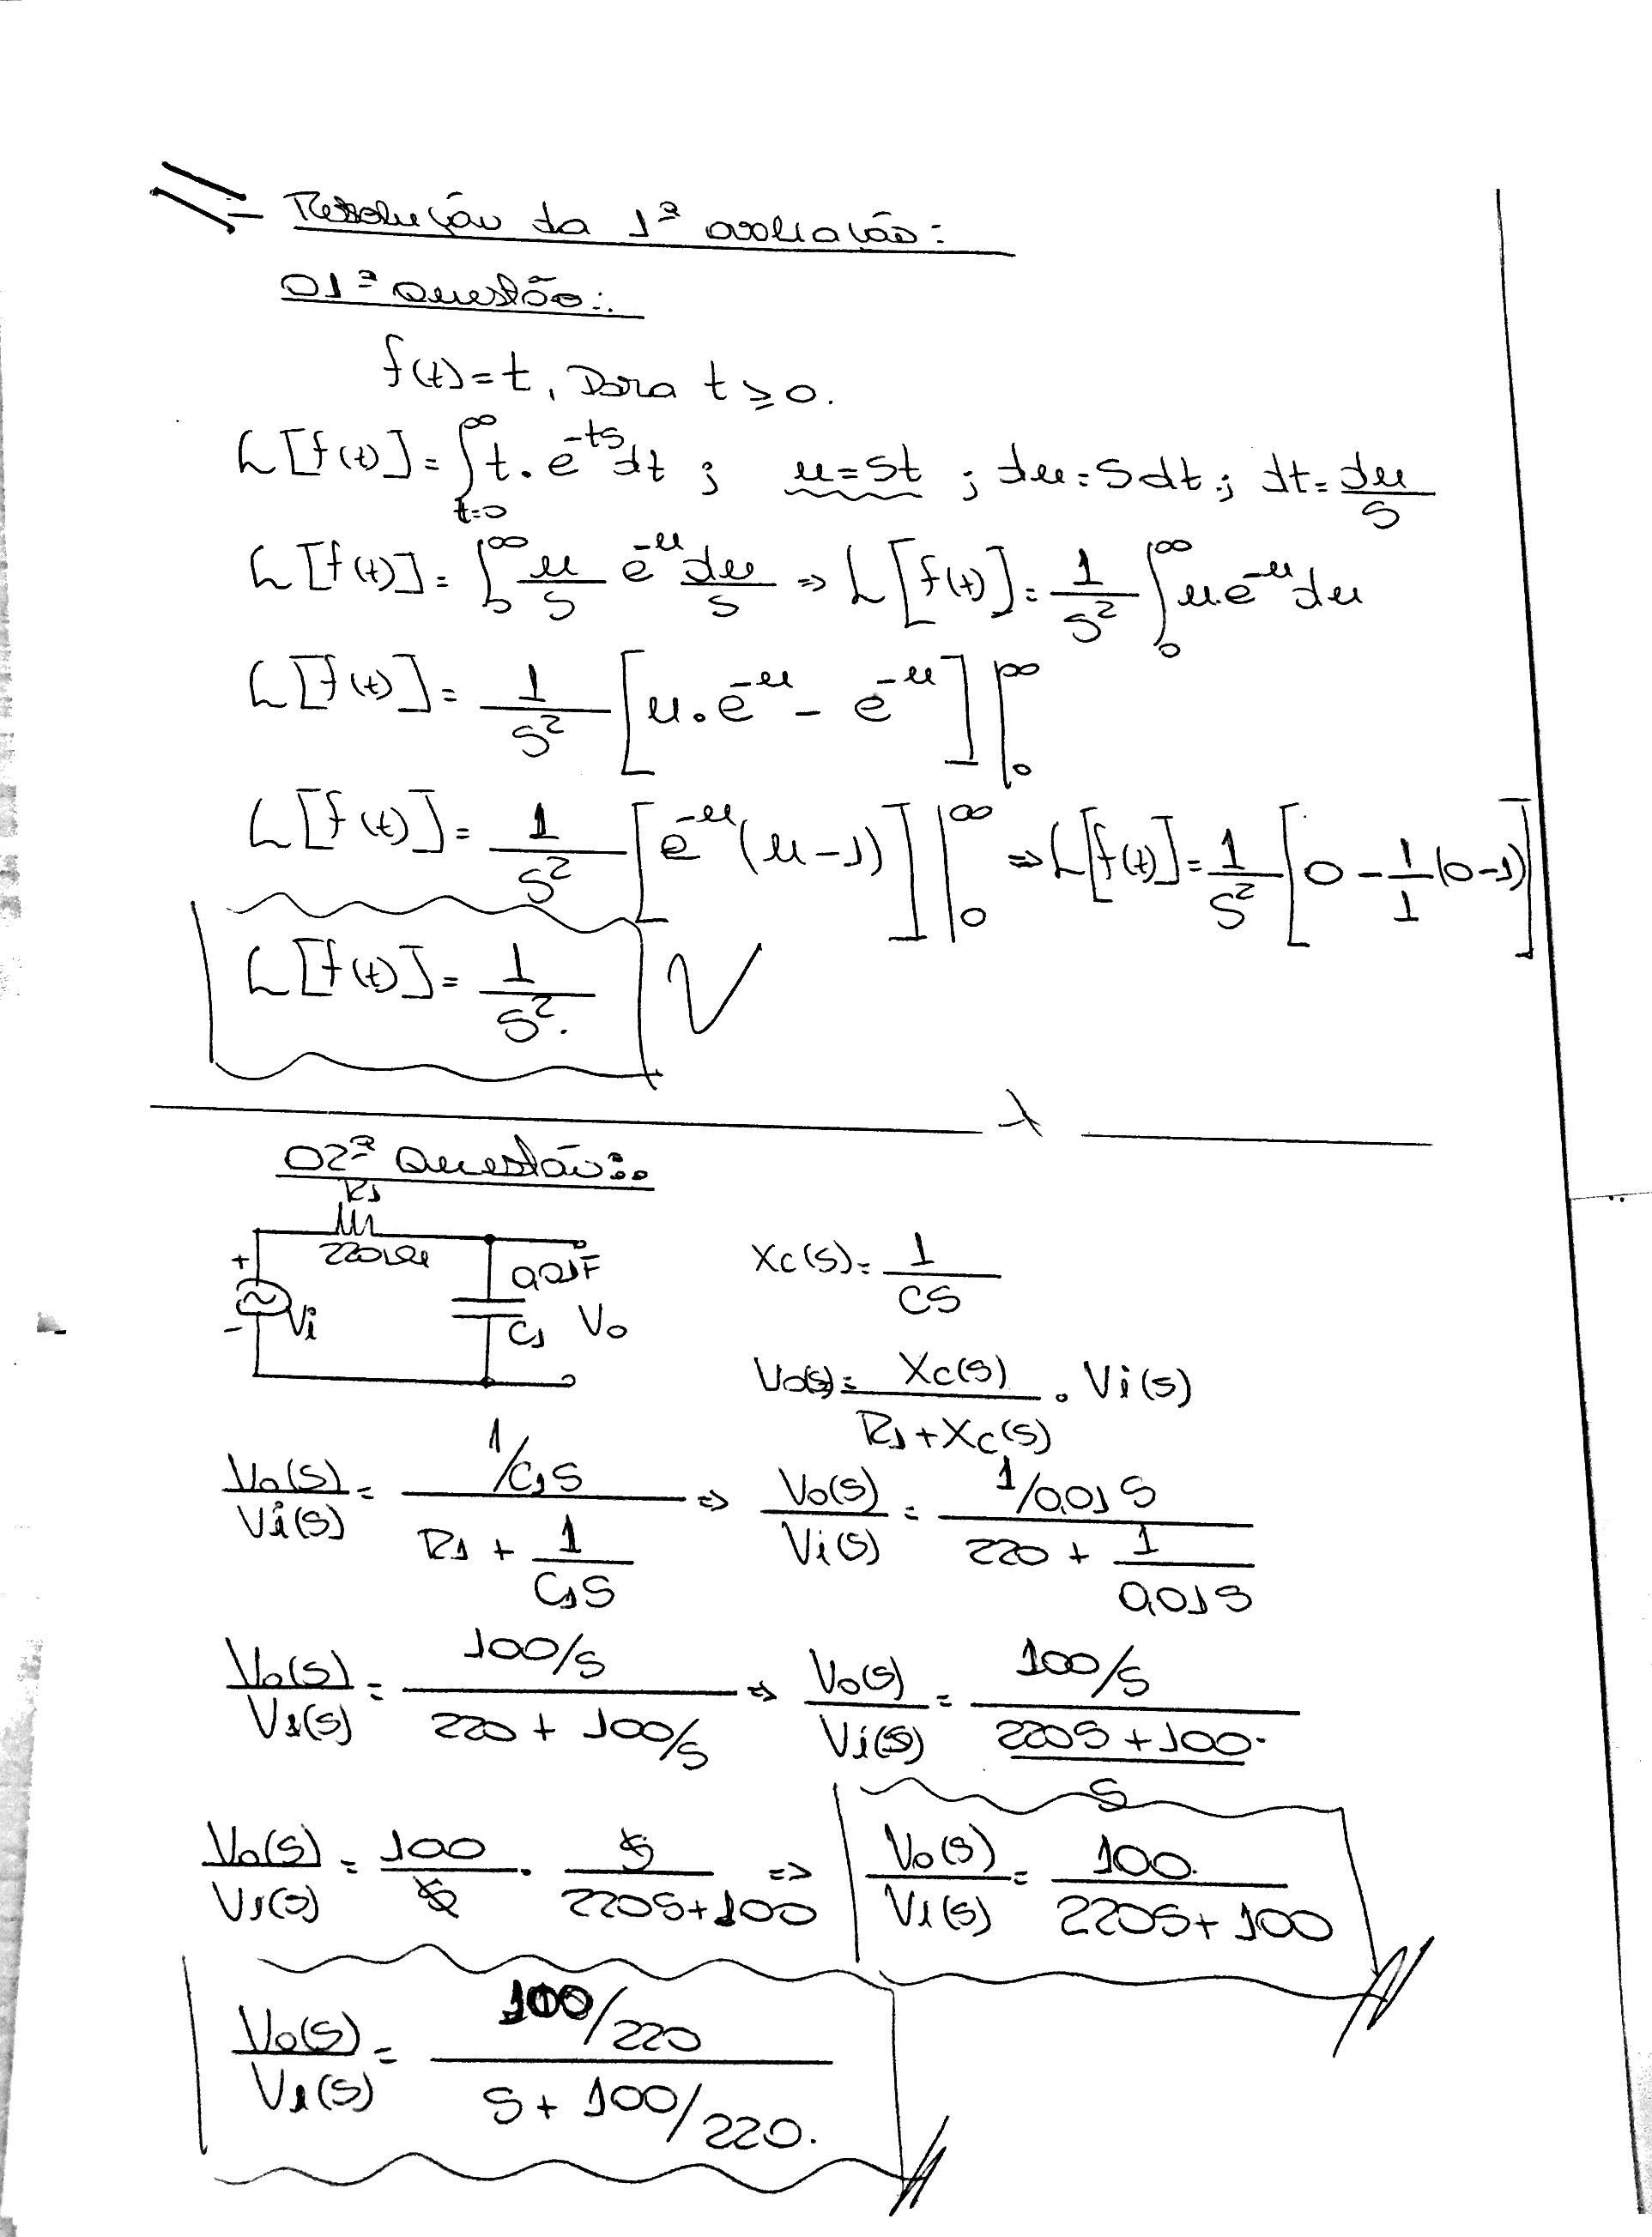 Resolução da 1ª avaliação:
01ª Questão:.
f(t)=t, para t≥0.
L[f(t)]=∫_{t=0}^{∞} t.e^{-ts}dt ; u=st ; du=sdt ; dt=du/s
L[f(t)]=∫_0^∞ u/s e^{-u} du/s ⇒ L[f(t)]=1/s² ∫_0^∞ u.e^{-u}du
L[f(t)]=1/s² [u.e^{-u} - e^{-u}]|_0^∞
L[f(t)]=1/s² [e^{-u}(u-1)]|_0^∞ ⇒ L[f(t)]=1/s² [0 - 1/1 (0-1)]
L[f(t)]=1/s².
02ª Questão:.
R1
220
+
0,01F
Vi
-
C1
Vo
Xc(s)=1/CS
Vo(s)=Xc(s)/(R1+Xc(s)) . Vi(s)
Vo(s)/Vi(s) = (1/C1S)/(R1 + 1/C1S) ⇒ Vo(s)/Vi(s) = (1/0,01S)/(220 + 1/0,01S)
Vo(s)/Vi(s) = (100/S)/(220 + 100/S) ⇒ Vo(s)/Vi(s) = (100/S)/((220S+100)/S)
Vo(s)/Vi(s) = 100/S . S/(220S+100) ⇒ Vo(s)/Vi(s) = 100/(220S+100)
Vo(s)/Vi(s) = (100/220)/(S+100/220).